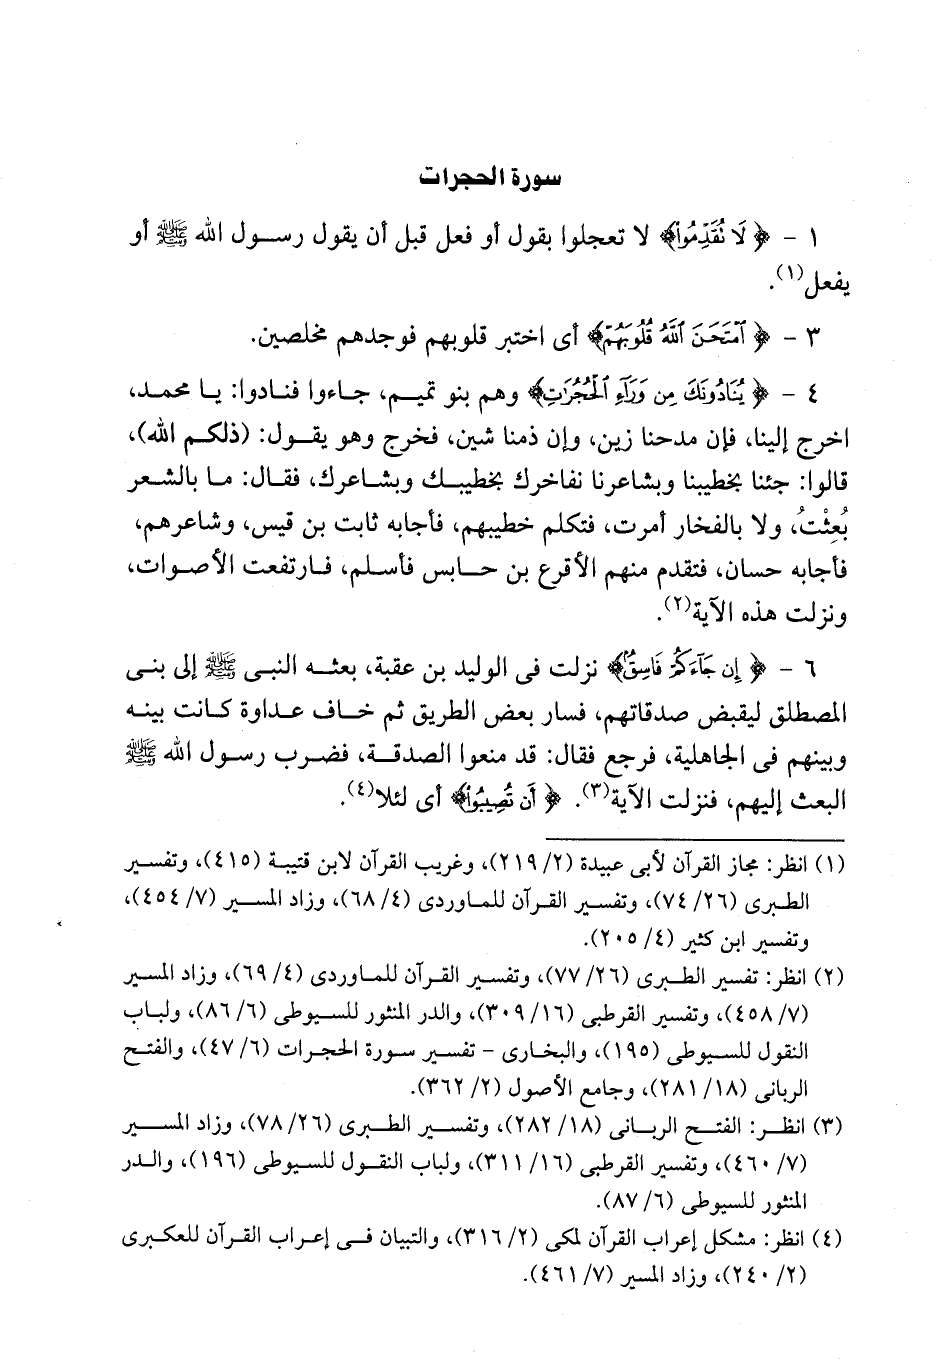 سورة الحجرات
١ - ﴿لَا تُقَدِّمُوا۟﴾ لا تعجلوا بقول أو فعل قبل أن يقول رسول الله ﷺ أو
يفعل(١).
٣ - ﴿ٱمْتَحَنَ ٱللَّهُ قُلُوبَهُمْ﴾ أى اختبر قلوبهم فوجدهم مخلصين.
٤ - ﴿يُنَادُونَكَ مِن وَرَآءِ ٱلْحُجُرَٰتِ﴾ وهم بنو تميم، جاءوا فنادوا: يا محمد،
اخرج إلينا، فإن مدحنا زين، وإن ذمنا شين، فخرج وهو يقول: (ذلكم الله)،
قالوا: جئنا بخطيبنا وبشاعرنا نفاخرك بخطيبك وبشاعرك، فقال: ما بالشعر
بُعِثْتُ، ولا بالفخار أمرت، فتكلم خطيبهم، فأجابه ثابت بن قيس، وشاعرهم،
فأجابه حسان، فتقدم منهم الأقرع بن حابس فأسلم، فارتفعت الأصوات،
ونزلت هذه الآية(٢).
٦ - ﴿إِن جَآءَكُمْ فَاسِقٌۢ﴾ نزلت فى الوليد بن عقبة، بعثه النبى ﷺ إلى بنى
المصطلق ليقبض صدقاتهم، فسار بعض الطريق ثم خاف عداوة كانت بينه
وبينهم فى الجاهلية، فرجع فقال: قد منعوا الصدقة، فضرب رسول الله ﷺ
البعث إليهم، فنزلت الآية(٣). ﴿أَن تُصِيبُوا۟﴾ أى لئلا(٤).
(١) انظر: مجاز القرآن لأبى عبيدة (٢/ ٢١٩)، وغريب القرآن لابن قتيبة (٤١٥)، وتفسير
الطبرى (٢٦/ ٧٤)، وتفسير القرآن للماوردى (٤/ ٦٨)، وزاد المسير (٧/ ٤٥٤)،
وتفسير ابن كثير (٤/ ٢٠٥).
(٢) انظر: تفسير الطبرى (٢٦/ ٧٧)، وتفسير القرآن للماوردى (٤/ ٦٩)، وزاد المسير
(٧/ ٤٥٨)، وتفسير القرطبى (١٦/ ٣٠٩)، والدر المنثور للسيوطى (٦/ ٨٦)، ولباب
النقول للسيوطى (١٩٥)، والبخارى - تفسير سورة الحجرات (٦/ ٤٧)، والفتح
الربانى (١٨/ ٢٨١)، وجامع الأصول (٢/ ٣٦٢).
(٣) انظر: الفتح الربانى (١٨/ ٢٨٢)، وتفسير الطبرى (٢٦/ ٧٨)، وزاد المسير
(٧/ ٤٦٠)، وتفسير القرطبى (١٦/ ٣١١)، ولباب النقول للسيوطى (١٩٦)، والدر
المنثور للسيوطى (٦/ ٨٧).
(٤) انظر: مشكل إعراب القرآن لمكى (٢/ ٣١٦)، والتبيان فى إعراب القرآن للعكبرى
(٢/ ٢٤٠)، وزاد المسير (٧/ ٤٦١).